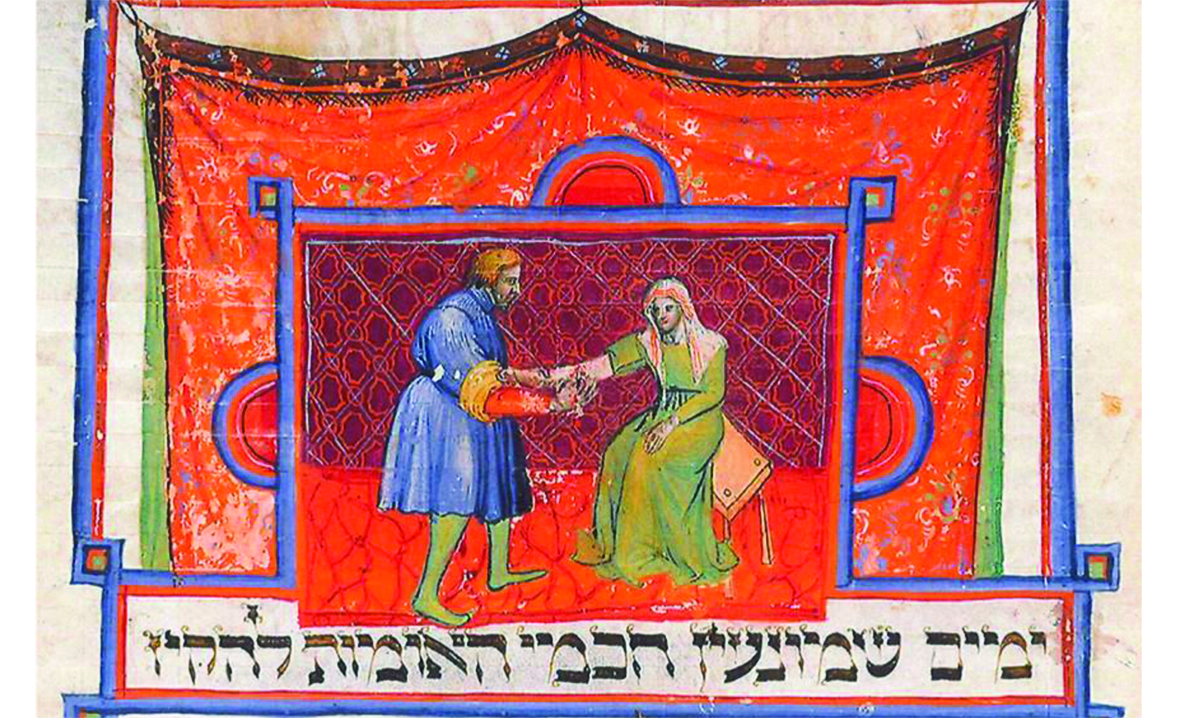 ימים שמונעין חכמי האומות להקיז